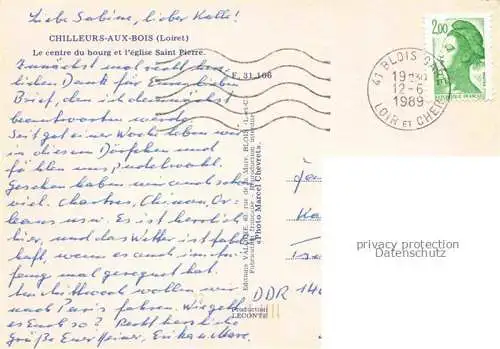 Liebe Sabine, lieber Kalle!
CHILLEURS-AUX-BOIS (Loiret)
Le centre du bourg et l'église Saint Pierre.
Zunächst mal recht herz-
lichen Dank für Euren lieben
Brief, den ich demnächst
beantworten werde.
Seit gut einer Woche leben wir
in diesem Dörfchen und
fühlen uns pudelwohl.
Gesehen haben wir auch schon
viel. Chartres, Chinon, Or-
leans usw. Es ist herrlich
hier, und das Wetter ist fabel-
haft, wenn es auch im An-
fang mal geregnet hat.
Am Mittwoch wollen wir
nach Paris fahren. Wie geht
es Euch so? Recht herzliche
Grüße Euer Heiner, Erika u. Marc
F. 31 106
41 BLOIS GARE
19
12-6
1989
LOIR ET CHER
2,00
Editions VALOIRE, 40 rue de la Mare, BLOIS (L.-et-C.)
Fabrication française - Reproduction interdite
«Photo Marcel Chevret»
Production
LECONTE
DDR 140
privacy protection
Datenschutz